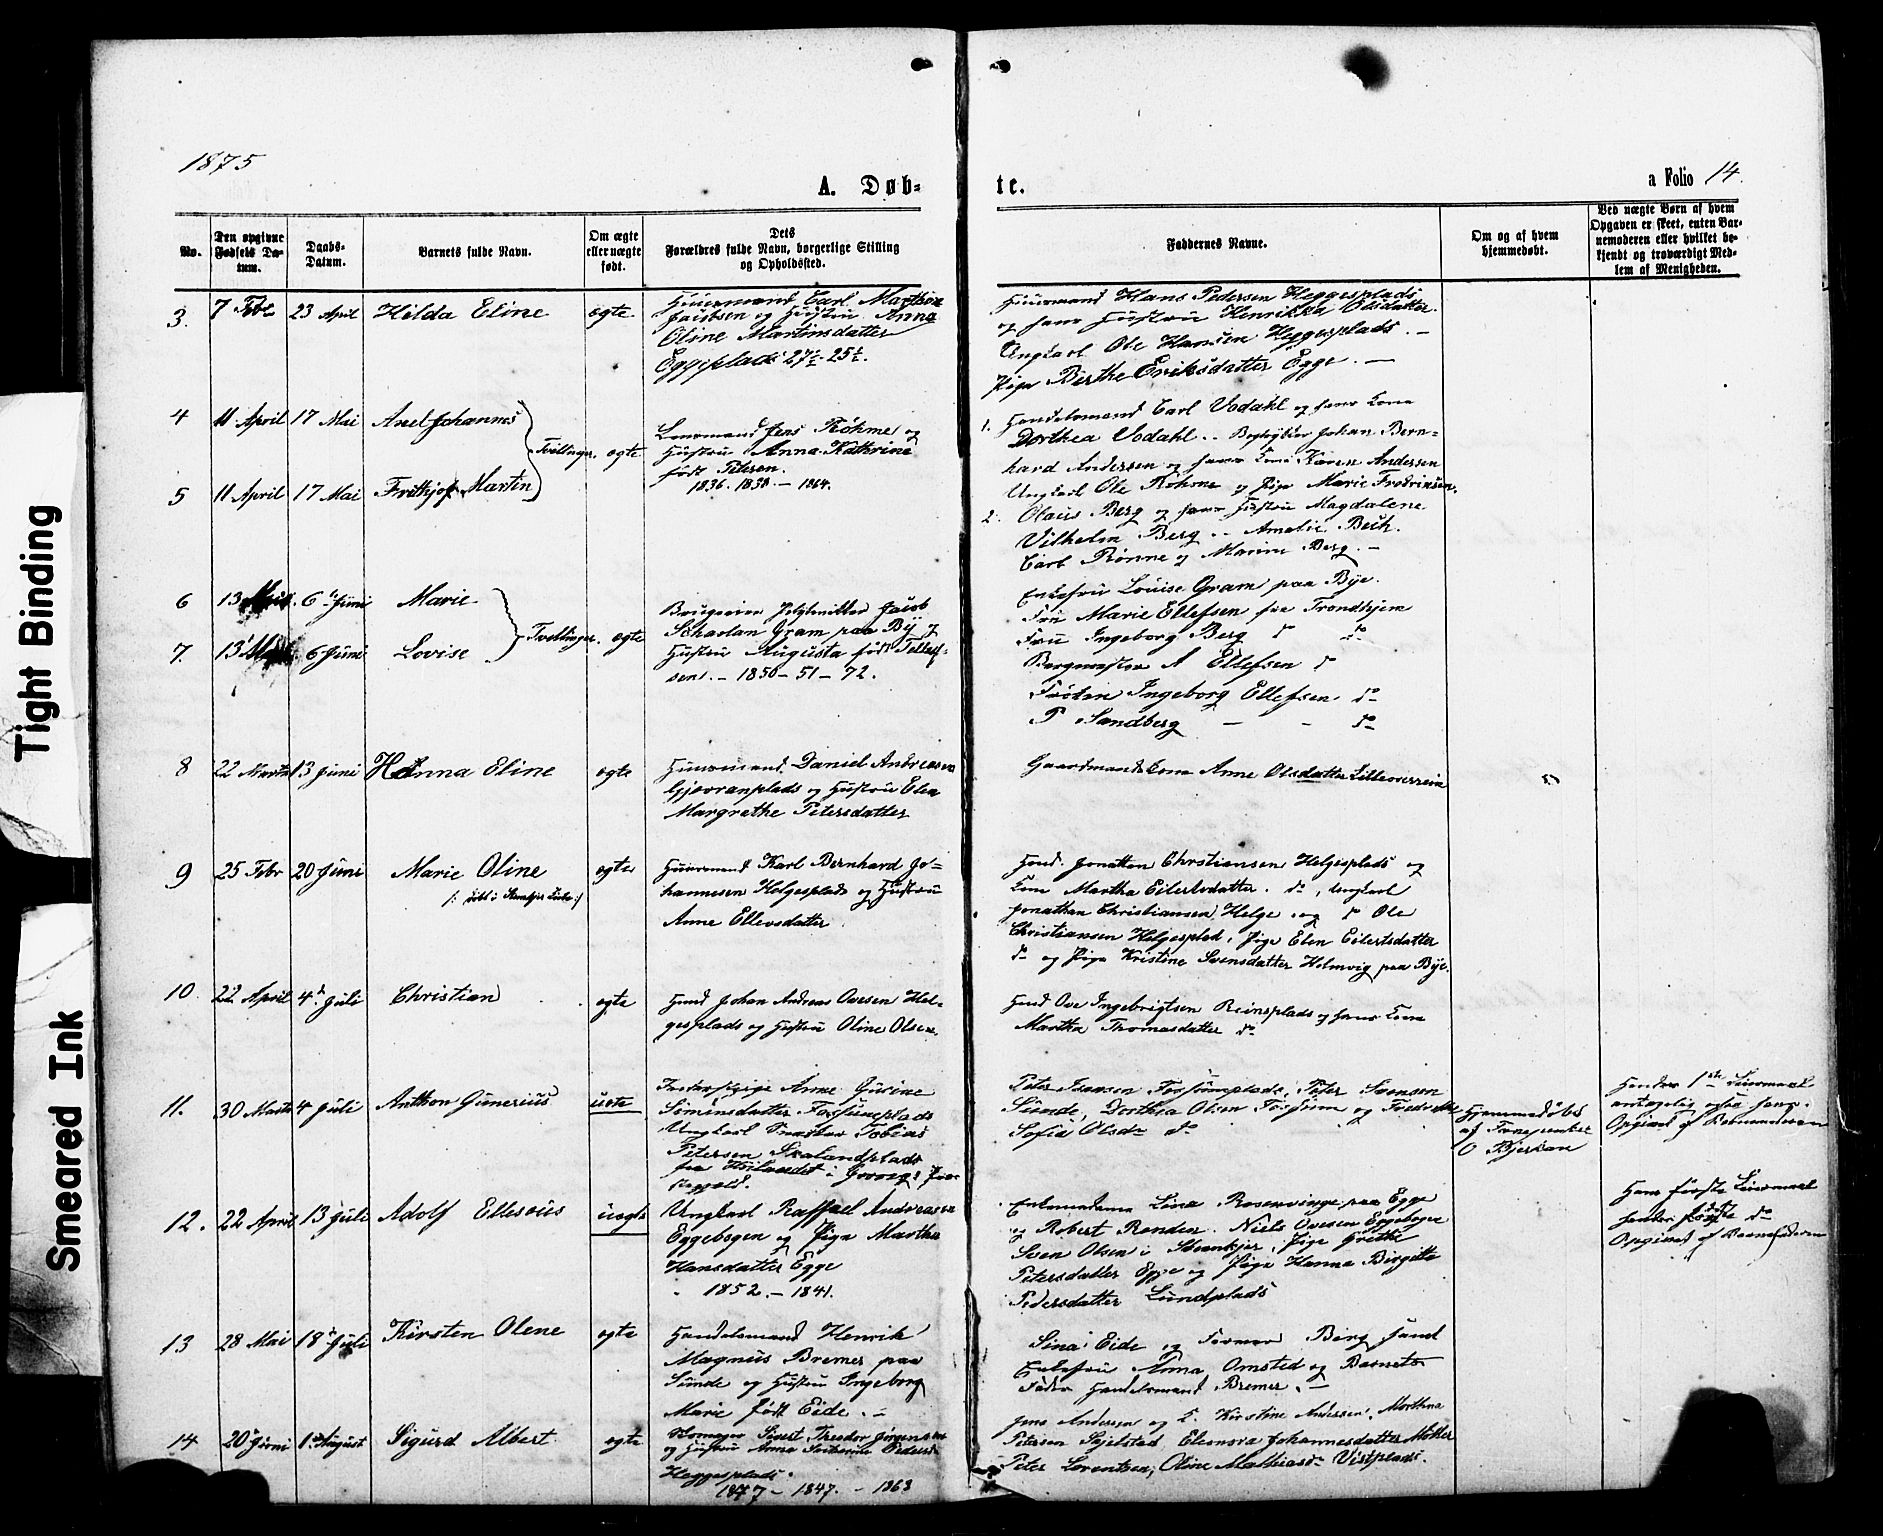 1875
A. Døb-
te.
a Folio 14.
No.
Den opgivne
Fødsels Da-
tum.
Daabs-
Datum.
Barnets fulde Navn.
Om ægte
eller uægte
født.
Dets
Forældres fulde Navn, borgerlige Stilling
og Opholdssted.
Faddernes Navne.
Om og af hvem
hjemmedøbt.
Ved uægte Børn af hvem
Opgaven er skeet, enten Bar-
nemoderen eller hvilket be-
kjendt og troværdigt Med-
lem af Menigheden.
3. 7 Febr 23 April Hilda Eline ægte
Huusmand Carl
Jacobsen og Hustru Anna
Oline Martinsdatter
Eggeplads 27 - 25
Huusmand Hans Pedersen Heggesplads
og hans Hustru Henrikka Olsdatter.
Ungkarl Ole Hansen Heggesplads. -
Pige Berthe Eriksdatter Egge. -
4 11 April 17 Mai Axel Johannes
5 11 April 17 Mai Frithjof Martin
Tvillinger. ægte
Lensmand Jens Røhme og
Hustru Anna Kathrine
født Petersen.
1836. 1838 - 1864.
1. Handelsmand Carl Vodahl og hans Kone
Dorthea Vodahl .. Johan Bern-
hard Andersen og hans Kone Karen Andersen
Ungkarl Ole Røhme og Pige Marie
2. Olaus Berg og hans Hustru Magdalene
Vilhelm Berg .. Amalie Bech.
Carl Rønne og Marine Berg. -
6 13 6 Juni Marie
7. 13 6 Juni Lovise
Tvillinger. ægte
Jacob
Gram paa By og
Hustru Augusta født Ellef-
sen. - 1850 - 51 - 72.
Enkefru Louise Gram paa Bye.
Fru Marie Ellefsen fra Trondhjem
Fru Ingeborg Berg do
A Ellefsen do
Frøken Ingeborg Ellefsen do
P Sandberg - - do
8 22 Marts 13 Juni Hanna Eline ægte
Huusmand Daniel Andreasen
Gjævranplads og Hustru Elen
Margrethe Petersdatter
Gaardmandskone Anne Olsdatter
9 25 Febr 20 Juni Marie Oline ægte
/: døbt i Stenkjær Kirke :/
Huusmand Karl Bernhard Jo-
hannesen Helgesplads og Hustru
Anne Ellevsdatter
Huusd. Jonathan Christiansen Helgesplads og
Kone Martha Eilertsdatter. do, Ungkarl
Jonathan Christiansen, Helge, og do Ole
Christiansen Helgesplad, Pige Elen Eilertsdatter
do og Pige Kristine Svensdatter Holmvig paa Bye.
10. 22 April 4 Juli Christian ægte
Husmd Johan Andreas Ovesen Hel-
gesplads og Hustru Oline Olsen.
Husmd Ove Ingebrigtsen Reinsplads og hans Kone
Martha Thomasdatter do
11. 30 Marts 4 Juli Anthon Gunerius uægte
Anne Gurine
Simonsdatter Fossumplads
Ungkarl Tobias
Petersen Skalandplads
Peter Iversen Fossumplads, Peter Svensen
Sunde, Dorthea Olsen Fossum og
Sofia Olsdr do
Hjemmedøbt
af
O Bjerkan
Hendes 1ste Leiermaal
Opgivet af Barnemoderen
12. 22 April 13 Juli Adolf Ellesøus uægte
Ungkarl Raffael Andreasen
Eggebogen og Pige Martha
Hansdatter Egge
1852. - 1841.
Enkemadame Lina Rosenvinge paa Egge
og Robert Render. Niels Ovesen Eggebogen
Sven Olsen i Steenkjær, Pige Grethe
Petersdatter Egge og Pige Hanna Birgitta
Pedersdatter Lundplads
Hans første Leiermaal
hendes første do
Opgivet af Barnefaderen
13 28 Mai 18 Juli Kirsten Olene ægte
Handelsmand Henrik
Magnus Bremer paa
Sunde og Hustru Ingeborg
Marie født Eide. -
Sina Eide og Berg samt
Enkefru Anna Omsted og Barnets
Fader Handelsmand Bremer. -
14 20 Juni 1 August Sigurd Albert. ægte
Sivert Theodor Jørgensen
og Hustru Anna
Heggesplads.
1847 - 1847. - 1863
Jens Andersen og K. Kirstine Andersen, Marthna
Petersen Eleonora Johannesdatter
Peter Lorentsen, Oline Mathiasdr Vistplads.
Tight Binding
Smeared Ink